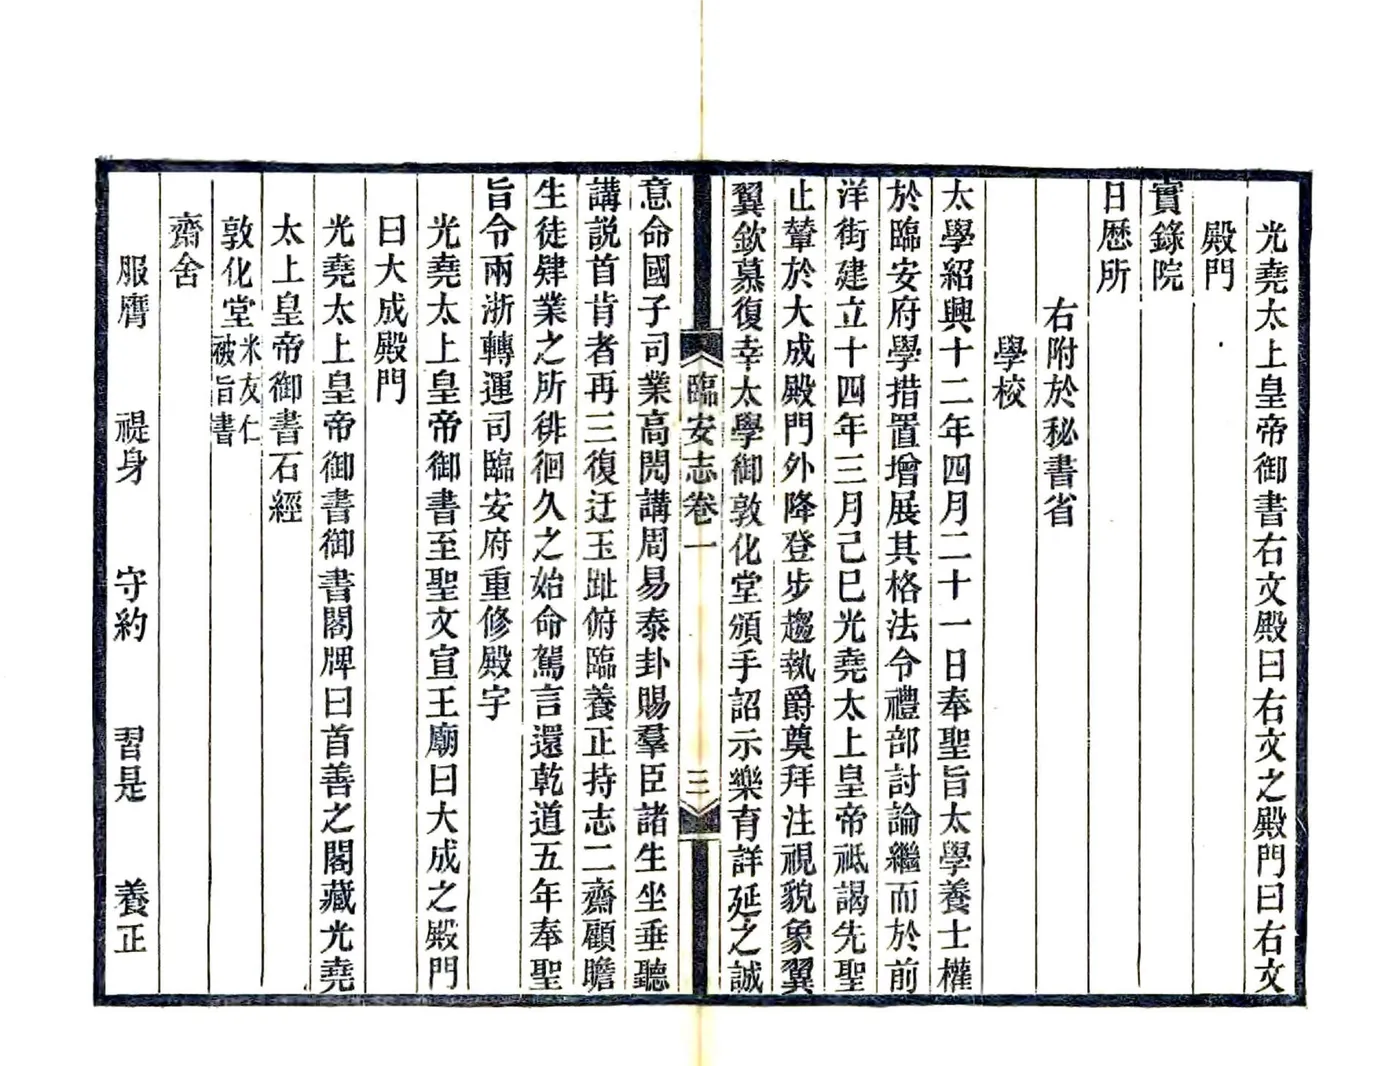 光堯太上皇帝御書右文殿曰右文之殿門曰右文
殿門
實錄院
日歷所
右附於秘書省
學校
太學紹興十二年四月二十一日奉聖旨太學養士權
於臨安府學措置增展其格法令禮部討論繼而於前
洋街建立十四年三月己巳光堯太上皇帝祗謁先聖
止輦於大成殿門外降登步趨執爵奠拜注視貌象翼
翼欽慕復幸太學御敦化堂頒手詔示樂育詳延之誠
臨安志卷一
三
意命國子司業高閌講周易泰卦賜羣臣諸生坐垂聽
講説首肯者再三復迂玉趾俯臨養正持志二齋顧瞻
生徒肄業之所徘徊久之始命駕言還乾道五年奉聖
旨令兩浙轉運司臨安府重修殿宇
光堯太上皇帝御書至聖文宣王廟曰大成之殿門
曰大成殿門
光堯太上皇帝御書御書閣牌曰首善之閣藏光堯
太上皇帝御書石經
敦化堂米友仁被旨書
齋舍
服膺　禔身　守約　習是　養正